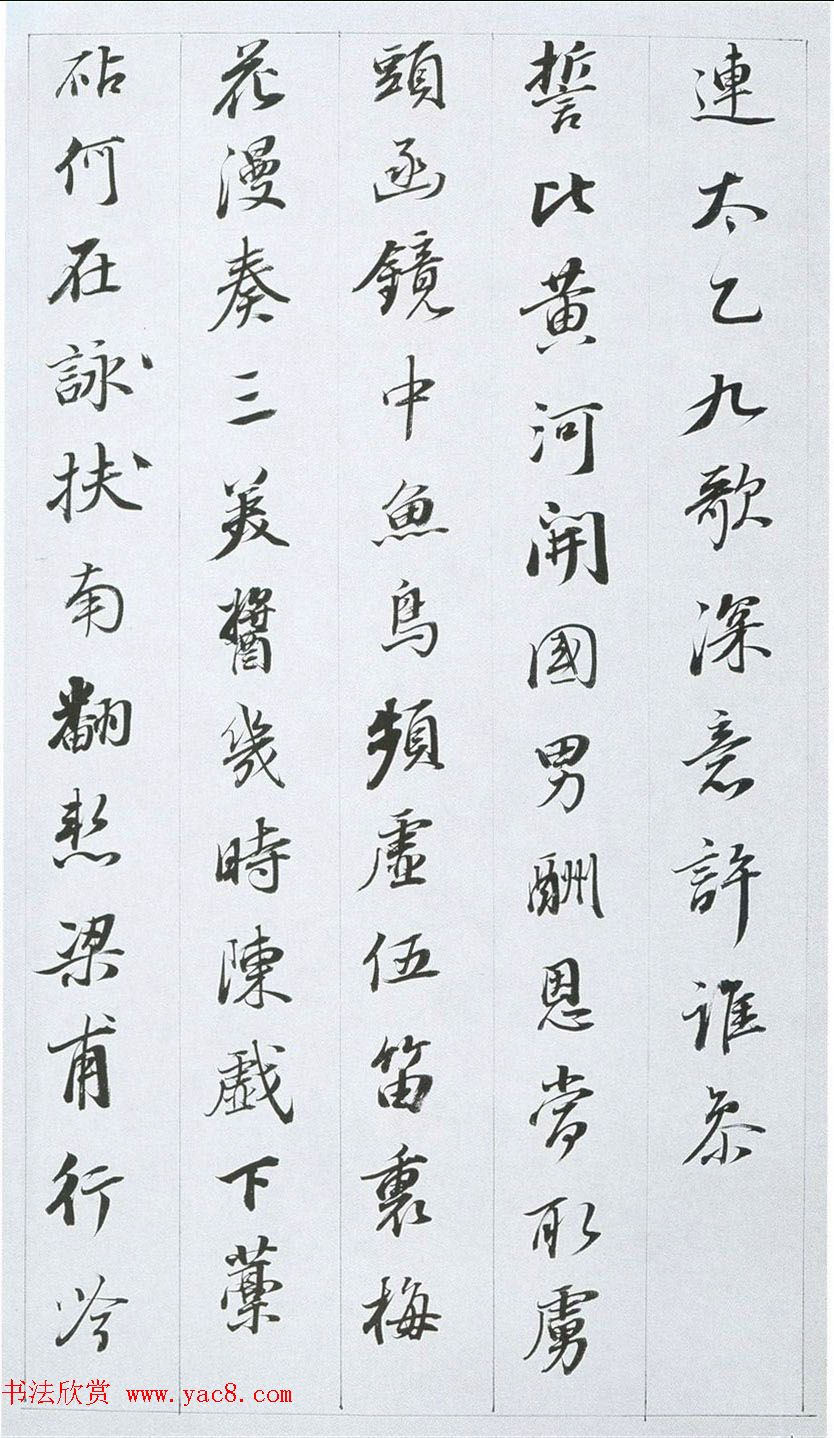 連太乙九歌深意許誰叅
誓比黄河開國男酬恩當取虜
頭函鏡中魚鳥頻虛伍笛裏梅
花漫奏三美醬幾時陳戲下藁
砧何在詠扶南翻梁甫行吟
书法欣赏 www.yac8.com